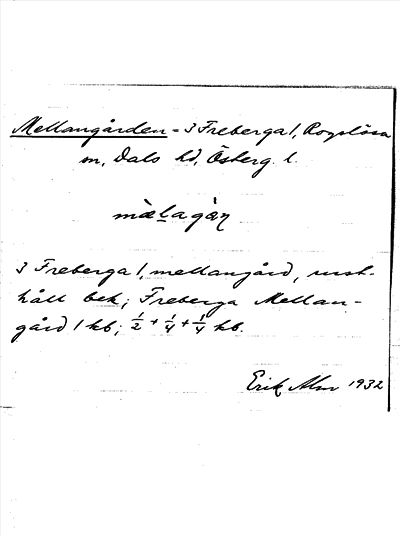 Mellangården = 3 Freberga 1, Rogslösa
sn, Dals hd, Österg. l.
mæ̀lagàṇ
3 Freberga 1, mellangård, rust-
håll bek; Freberga Mellan-
gård 1 kb; ½ + ¼ + ¼ kb.
Erik Alm 1932